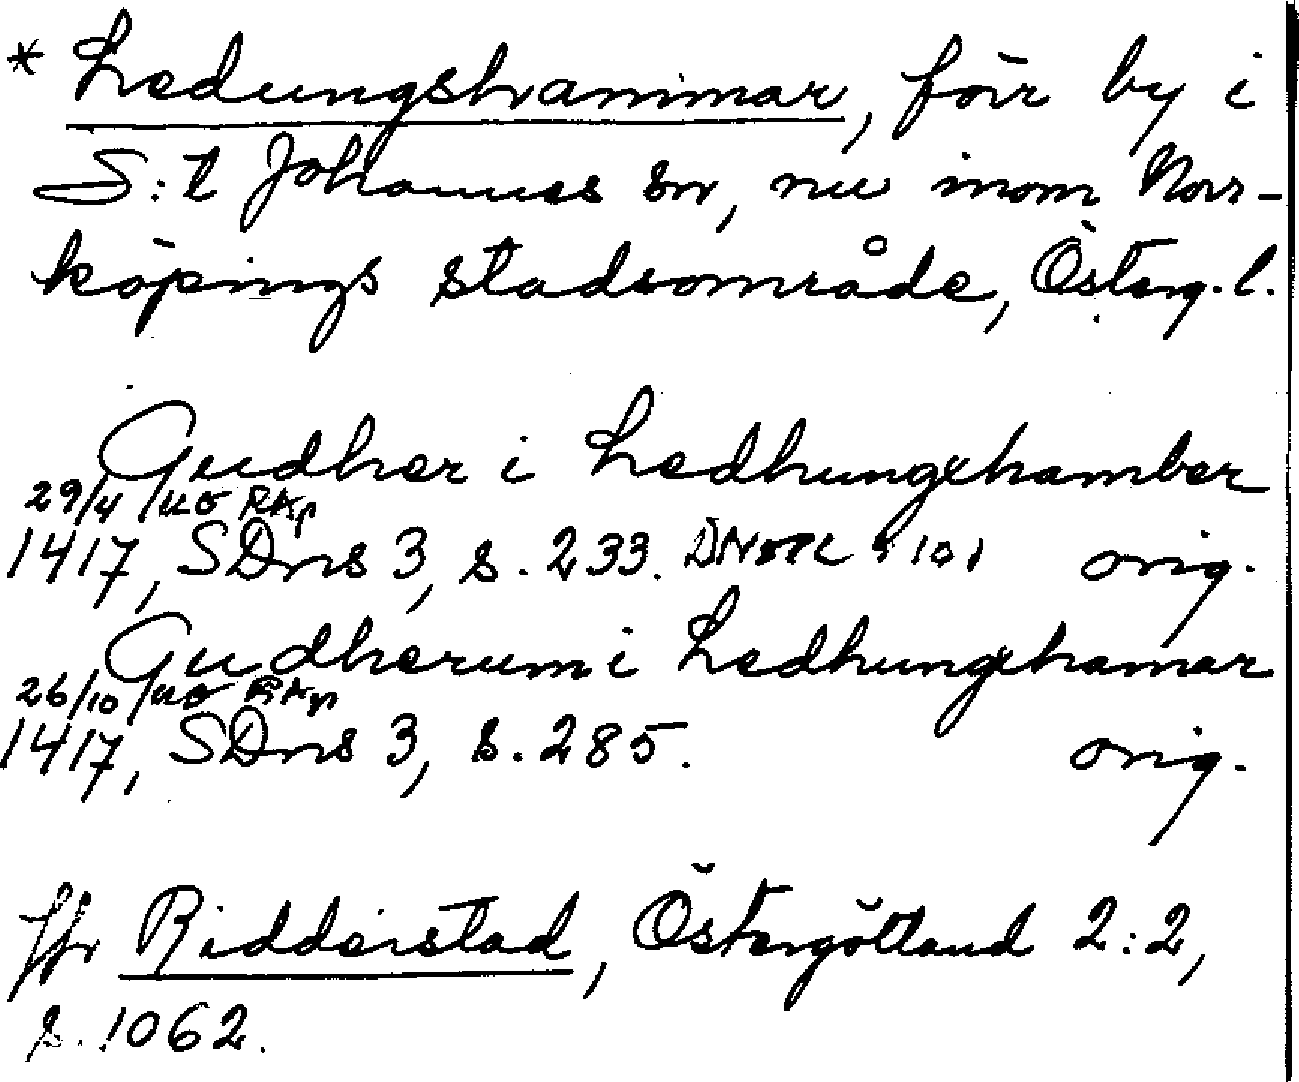 * Ledungshammar, förr by i
S:t Johannes sn, nu inom Norr-
köpings stadsområde, Österg. l.
Gudher i Ledhungxhamber
29/4 UÖ RKp
1417, SDns 3, s. 233. orig.
Gudherum i Ledhungxhamar
26/10 UÖ RKp
1417, SDns 3, s. 285. orig.
Jfr Ridderstad, Östergötland 2:2,
s. 1062.